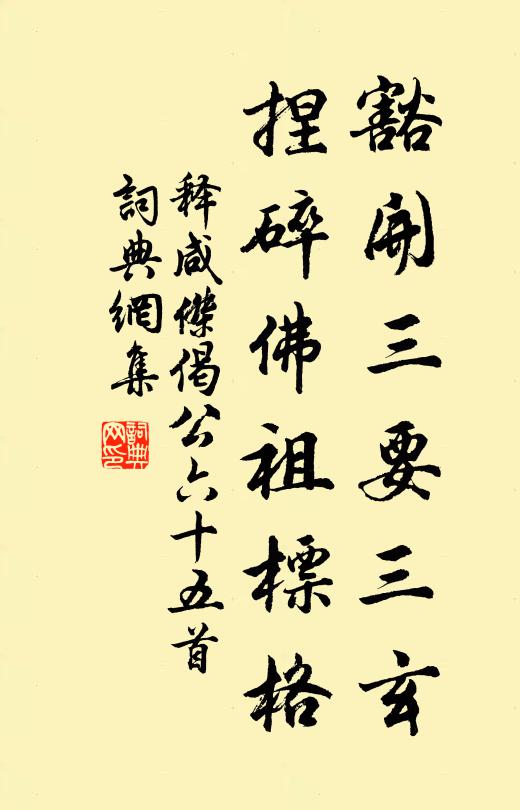 豁開三要三玄
捏碎佛祖標格
释咸傑偈公六十五首
詞典網集
詞典网印